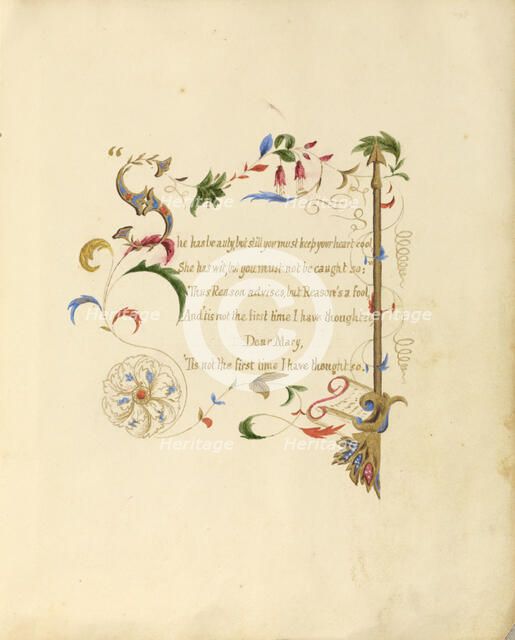 “
She has beauty, but still you must keep your heart cool
She has wit, but you must not be caught so:
Thus Reason advises, but Reason's a fool,
And 'tis not the first time I have thought so
Dear Mary,
'Tis not the first time I have thought so.
Heritage
Heritage
Heritage
Heritage
Heritage
Heritage
Heritage
Heritage